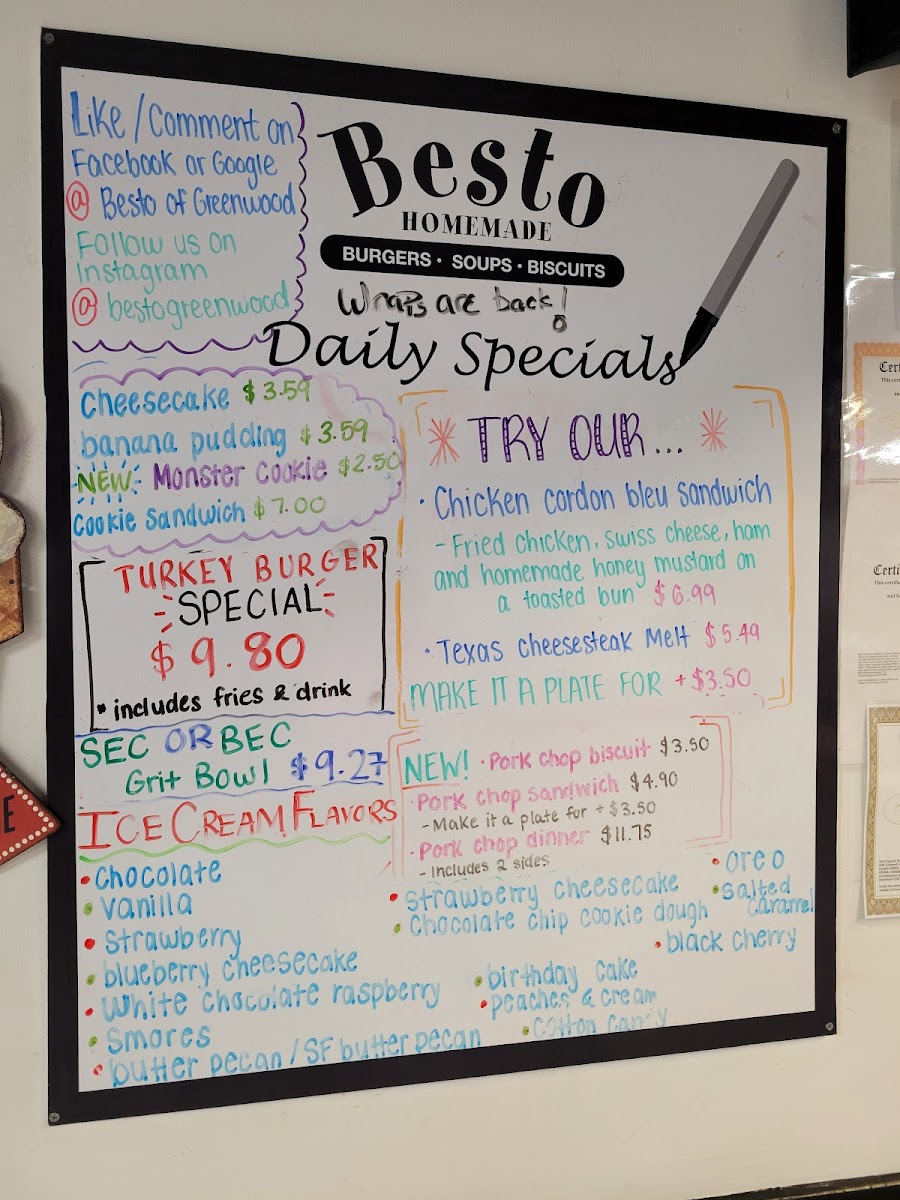 Like / Comment on
Facebook or Google
@ Besto of Greenwood
Follow us on
Instagram
@ bestogreenwood
Besto
HOMEMADE
BURGERS · SOUPS · BISCUITS
Wraps are back!
Daily Specials
cheesecake $3.59
banana pudding $3.59
NEW: Monster Cookie $2.50
Cookie Sandwich $7.00
TURKEY BURGER
SPECIAL
$9.80
* includes fries & drink
SEC OR BEC
Grit Bowl $9.27
TRY OUR...
· Chicken cordon bleu sandwich
- Fried chicken, swiss cheese, ham
and homemade honey mustard on
a toasted bun $6.99
· Texas cheesesteak Melt $5.49
MAKE IT A PLATE FOR + $3.50
NEW! · Pork chop biscuit $3.50
· Pork chop sandwich $4.90
- Make it a plate for + $3.50
· Pork chop dinner $11.75
- Includes 2 sides
ICE CREAM FLAVORS
· Chocolate
· Vanilla
· Strawberry
· blueberry cheesecake
· White chocolate raspberry
· Smores
· butter pecan / SF butter pecan
· Strawberry cheesecake
· Chocolate chip cookie dough
· birthday cake
· peaches & cream
· Cotton Candy
· oreo
· Salted
Caramel
· black cherry